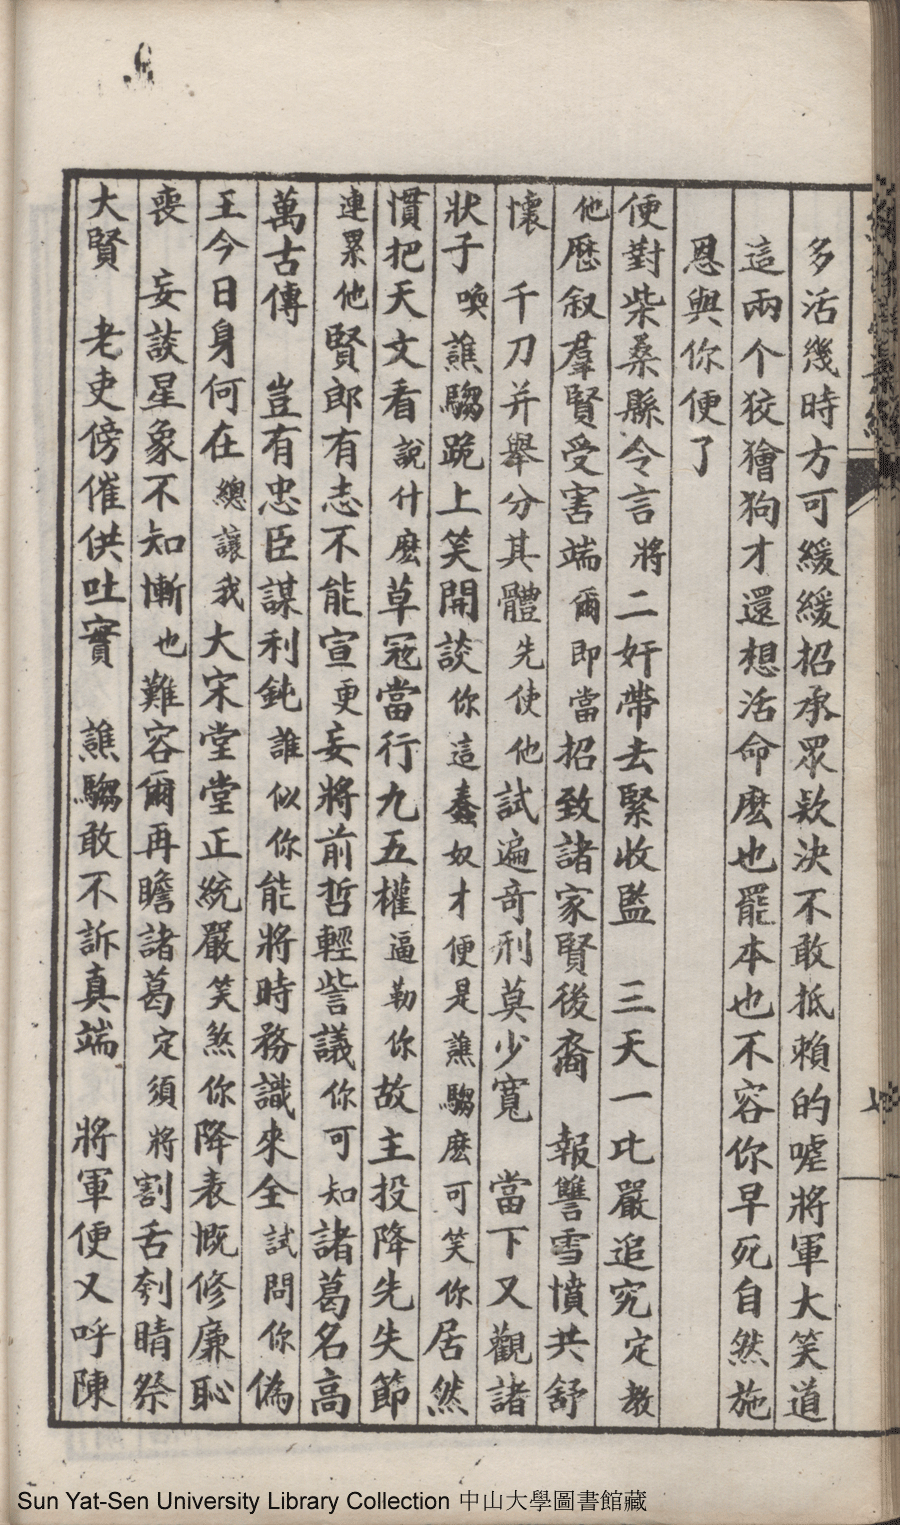 多活幾時方可緩緩招承眾欵決不敢抵賴的嘘將軍大笑道
這兩个狡獪狗才還想活命麽也罷本也不容你早死自然施
恩與你便了
便對柴桑縣令言將二奸帶去緊收監　三天一比嚴追究定教
他歷叙羣賢受害端爾即當招致諸家賢後裔　報讐雪憤共舒
懷　千刀并舉分其體先使他試遍奇刑莫少寬　當下又觀諸
狀子喚譙騶跪上笑開談你這蠢奴才便是譙騶麽可笑你居然
慣把天文看說什麽草冦當行九五權逼勒你故主投降先失節
連累他賢郎有志不能宣更妄將前哲輕訾議你可知諸葛名高
萬古傳　豈有忠臣謀利鈍誰似你能將時務識來全試問你偽
王今日身何在總讓我大宋堂堂正統嚴笑煞你降表慨修廉恥
喪　妄談星象不知慚也難容爾再瞻諸葛定須將割舌刳睛祭
大賢　老吏傍催供吐實　譙騶敢不訴真端　將軍便又呼陳
Sun Yat-Sen University Library Collection 中山大學圖書館藏